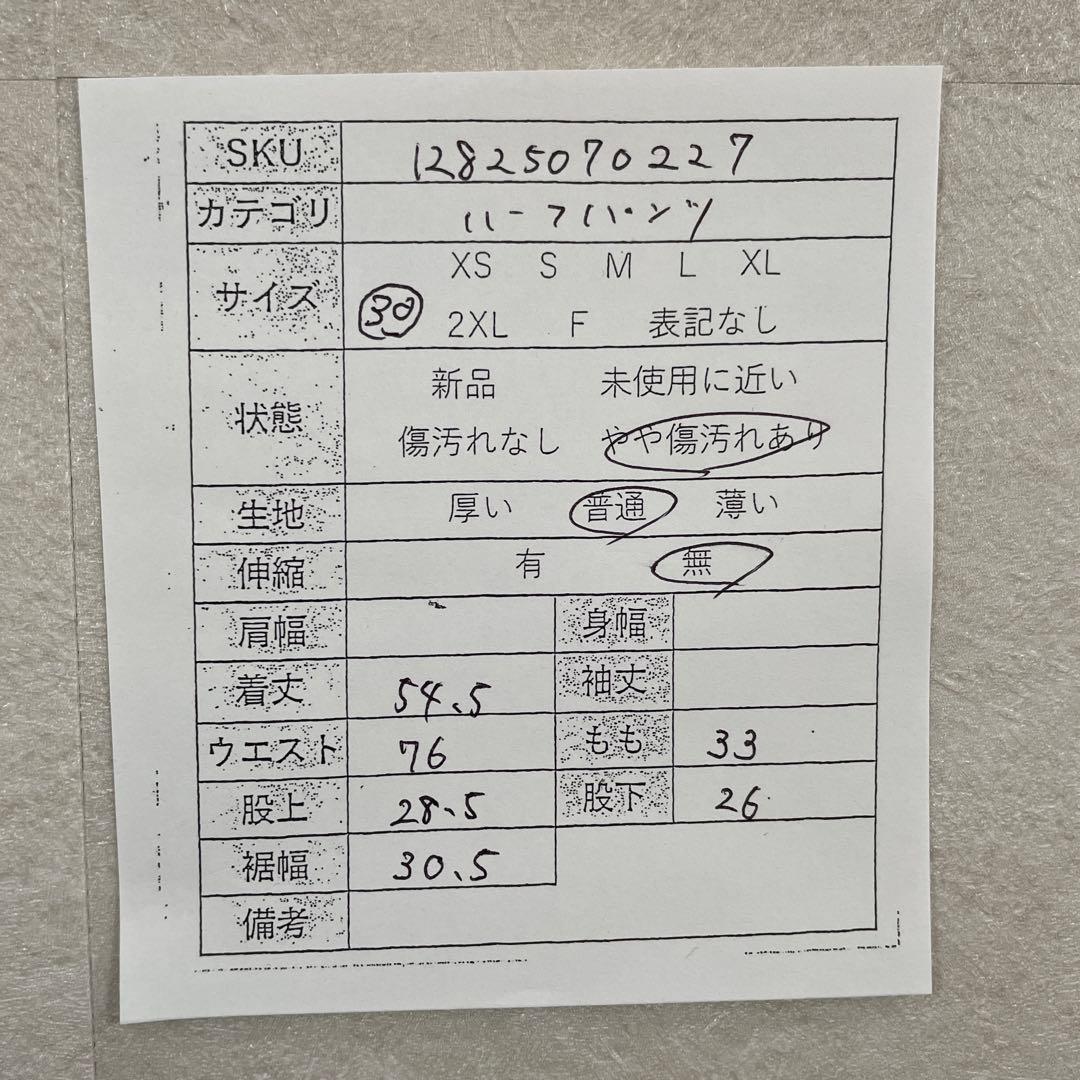 SKU 12825070227
カテゴリ ハーフパンツ
サイズ XS S M L XL
30 2XL F 表記なし
状態 新品 未使用に近い
傷汚れなし やや傷汚れあり
生地 厚い 普通 薄い
伸縮 有 無
肩幅 身幅
着丈 54.5 袖丈
ウエスト 76 もも 33
股上 28.5 股下 26
裾幅 30.5
備考